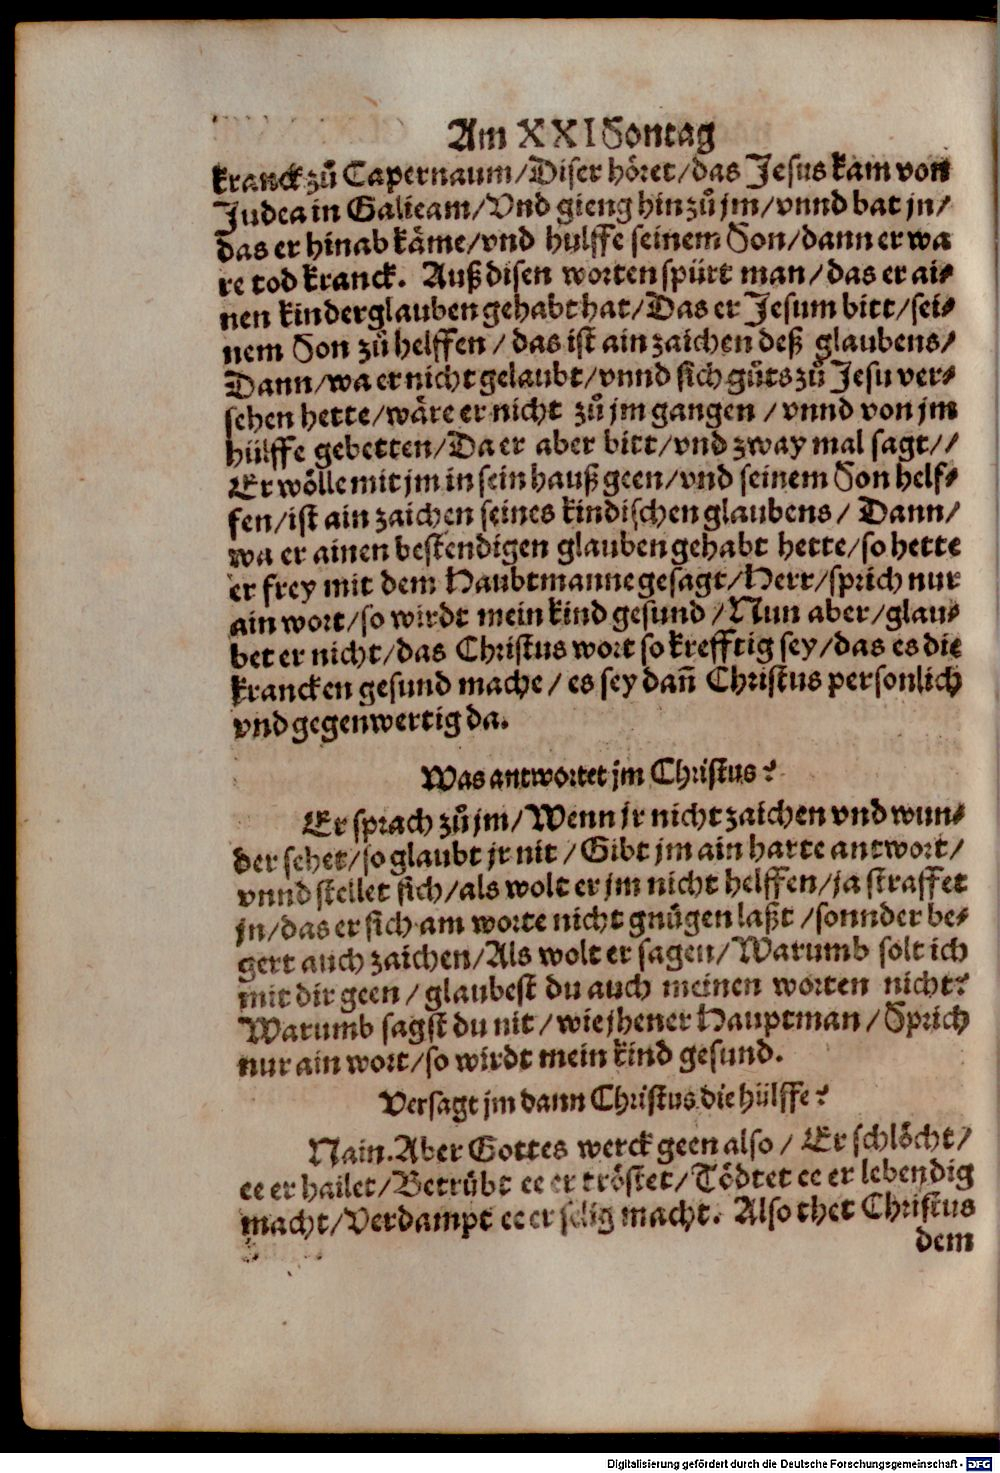 Am XXI Sontag
kranck zů Capernaum/Diser höret/das Jesus kam von
Judea in Galieam/Vnd gieng hin zů jm/vnnd bat jn/
das er hinab käme/vnd hulffe seinem Son/dann er wa
re tod kranck. Auß disen worten spürt man/das er ai-
nen kinderglauben gehabt hat/Das er Jesum bitt/sei-
nem Son zů helffen/das ist ain zaichen deß glaubens/
Dann/wa er nicht gelaubt/vnnd sich gůts zů Jesu ver-
sehen hette/wäre er nicht zů jm gangen/vnnd von jm
hülffe gebetten/Da er aber bitt/vnd zway mal sagt//
Er wölle mit jm in sein hauß geen/vnd seinem Son helf-
fen/ist ain zaichen seines kindischen glaubens/Dann/
wa er ainen bestendigen glauben gehabt hette/so hette
er frey mit dem Haubtmanne gesagt/Herr/sprich nur
ain wort/so wirdt mein kind gesund/Nun aber/glau-
bet er nicht/das Christus wort so krefftig sey/das es die
krancken gesund mache/es sey dañ Christus personlich
vnd gegenwertig da.
Was antwortet jm Christus?
Er sprach zů jm/Wenn jr nicht zaichen vnd wun-
der sehet/so glaubt jr nit/Gibt jm ain harte antwort/
vnnd stellet sich/als wolt er jm nicht helffen/ja straffet
jn/das er sich am worte nicht gnůgen laßt/sonnder be-
gert auch zaichen/Als wolt er sagen/Warumb solt ich
mit dir geen/glaubest du auch meinen worten nicht?
Warumb sagst du nit/wie jhener Hauptman/Sprich
nur ain wort/so wirdt mein kind gesund.
Versagt jm dann Christus die hülffe?
Nain. Aber Gottes werck geen also/Er schlöcht/
ee er hailet/Betrůbt ee er tröstet/Tödtet ee er lebendig
macht/Verdampt ee er selig macht. Also thet Christus
dem
Digitalisierung gefördert durch die Deutsche Forschungsgemeinschaft - DFG